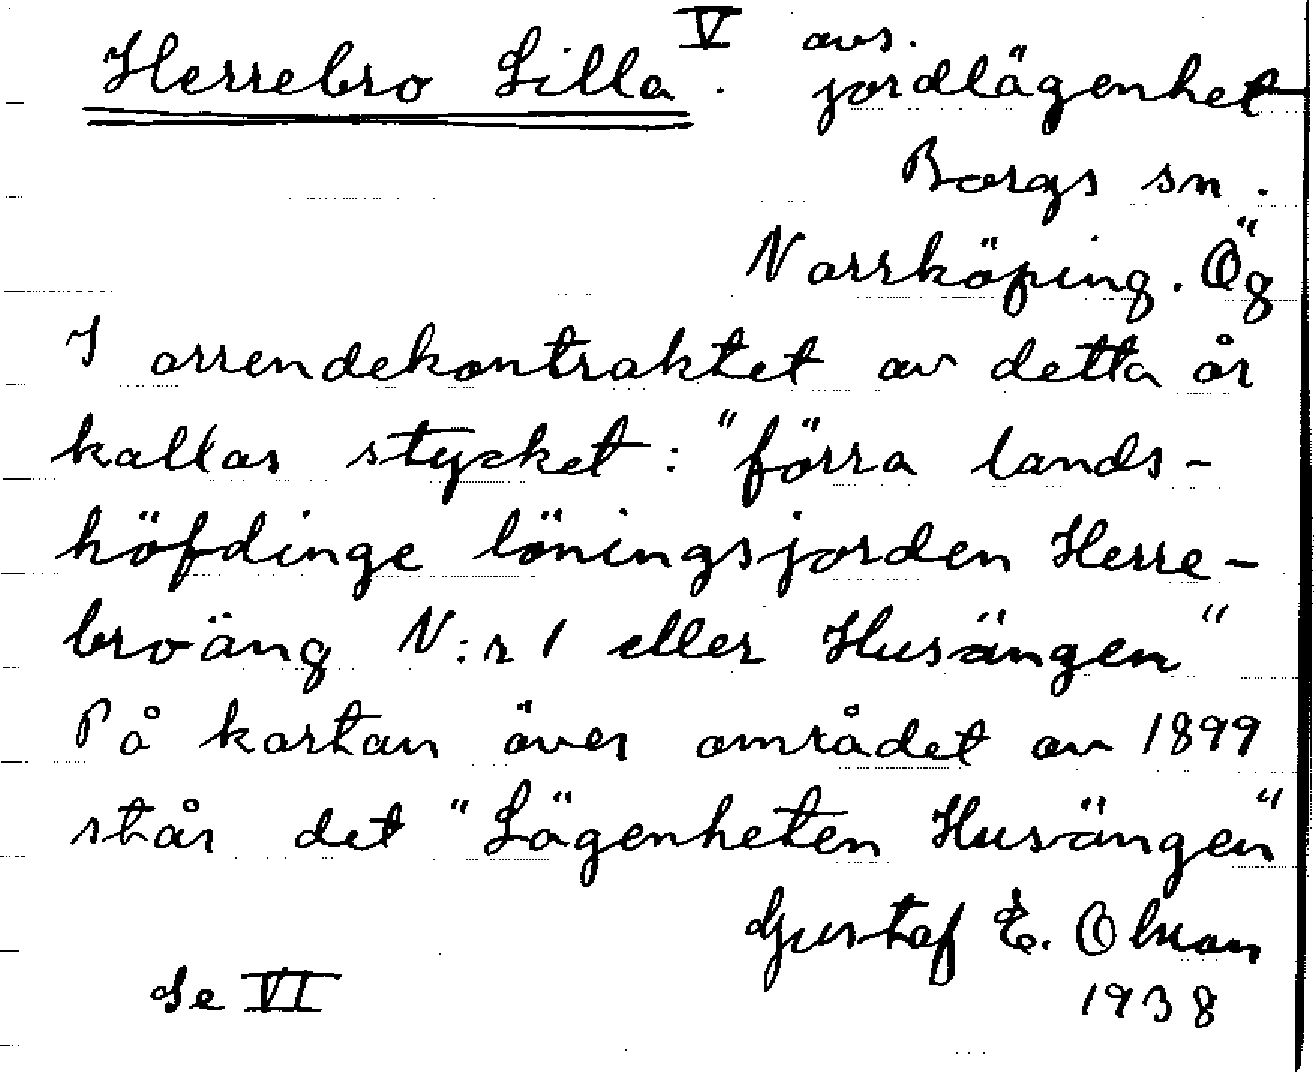 Herrebro Lilla V. avs. jordlägenhet
Borgs sn.
Norrköping. Ög
I arrendekontraktet av detta år
kallas stycket: "förra lands-
höfdinge löningsjorden Herre-
broäng N:r 1 eller Husängen"
På kartan över området av 1899
står det "Lägenheten Husängen"
Gustaf E. Olson
Se VI 1938